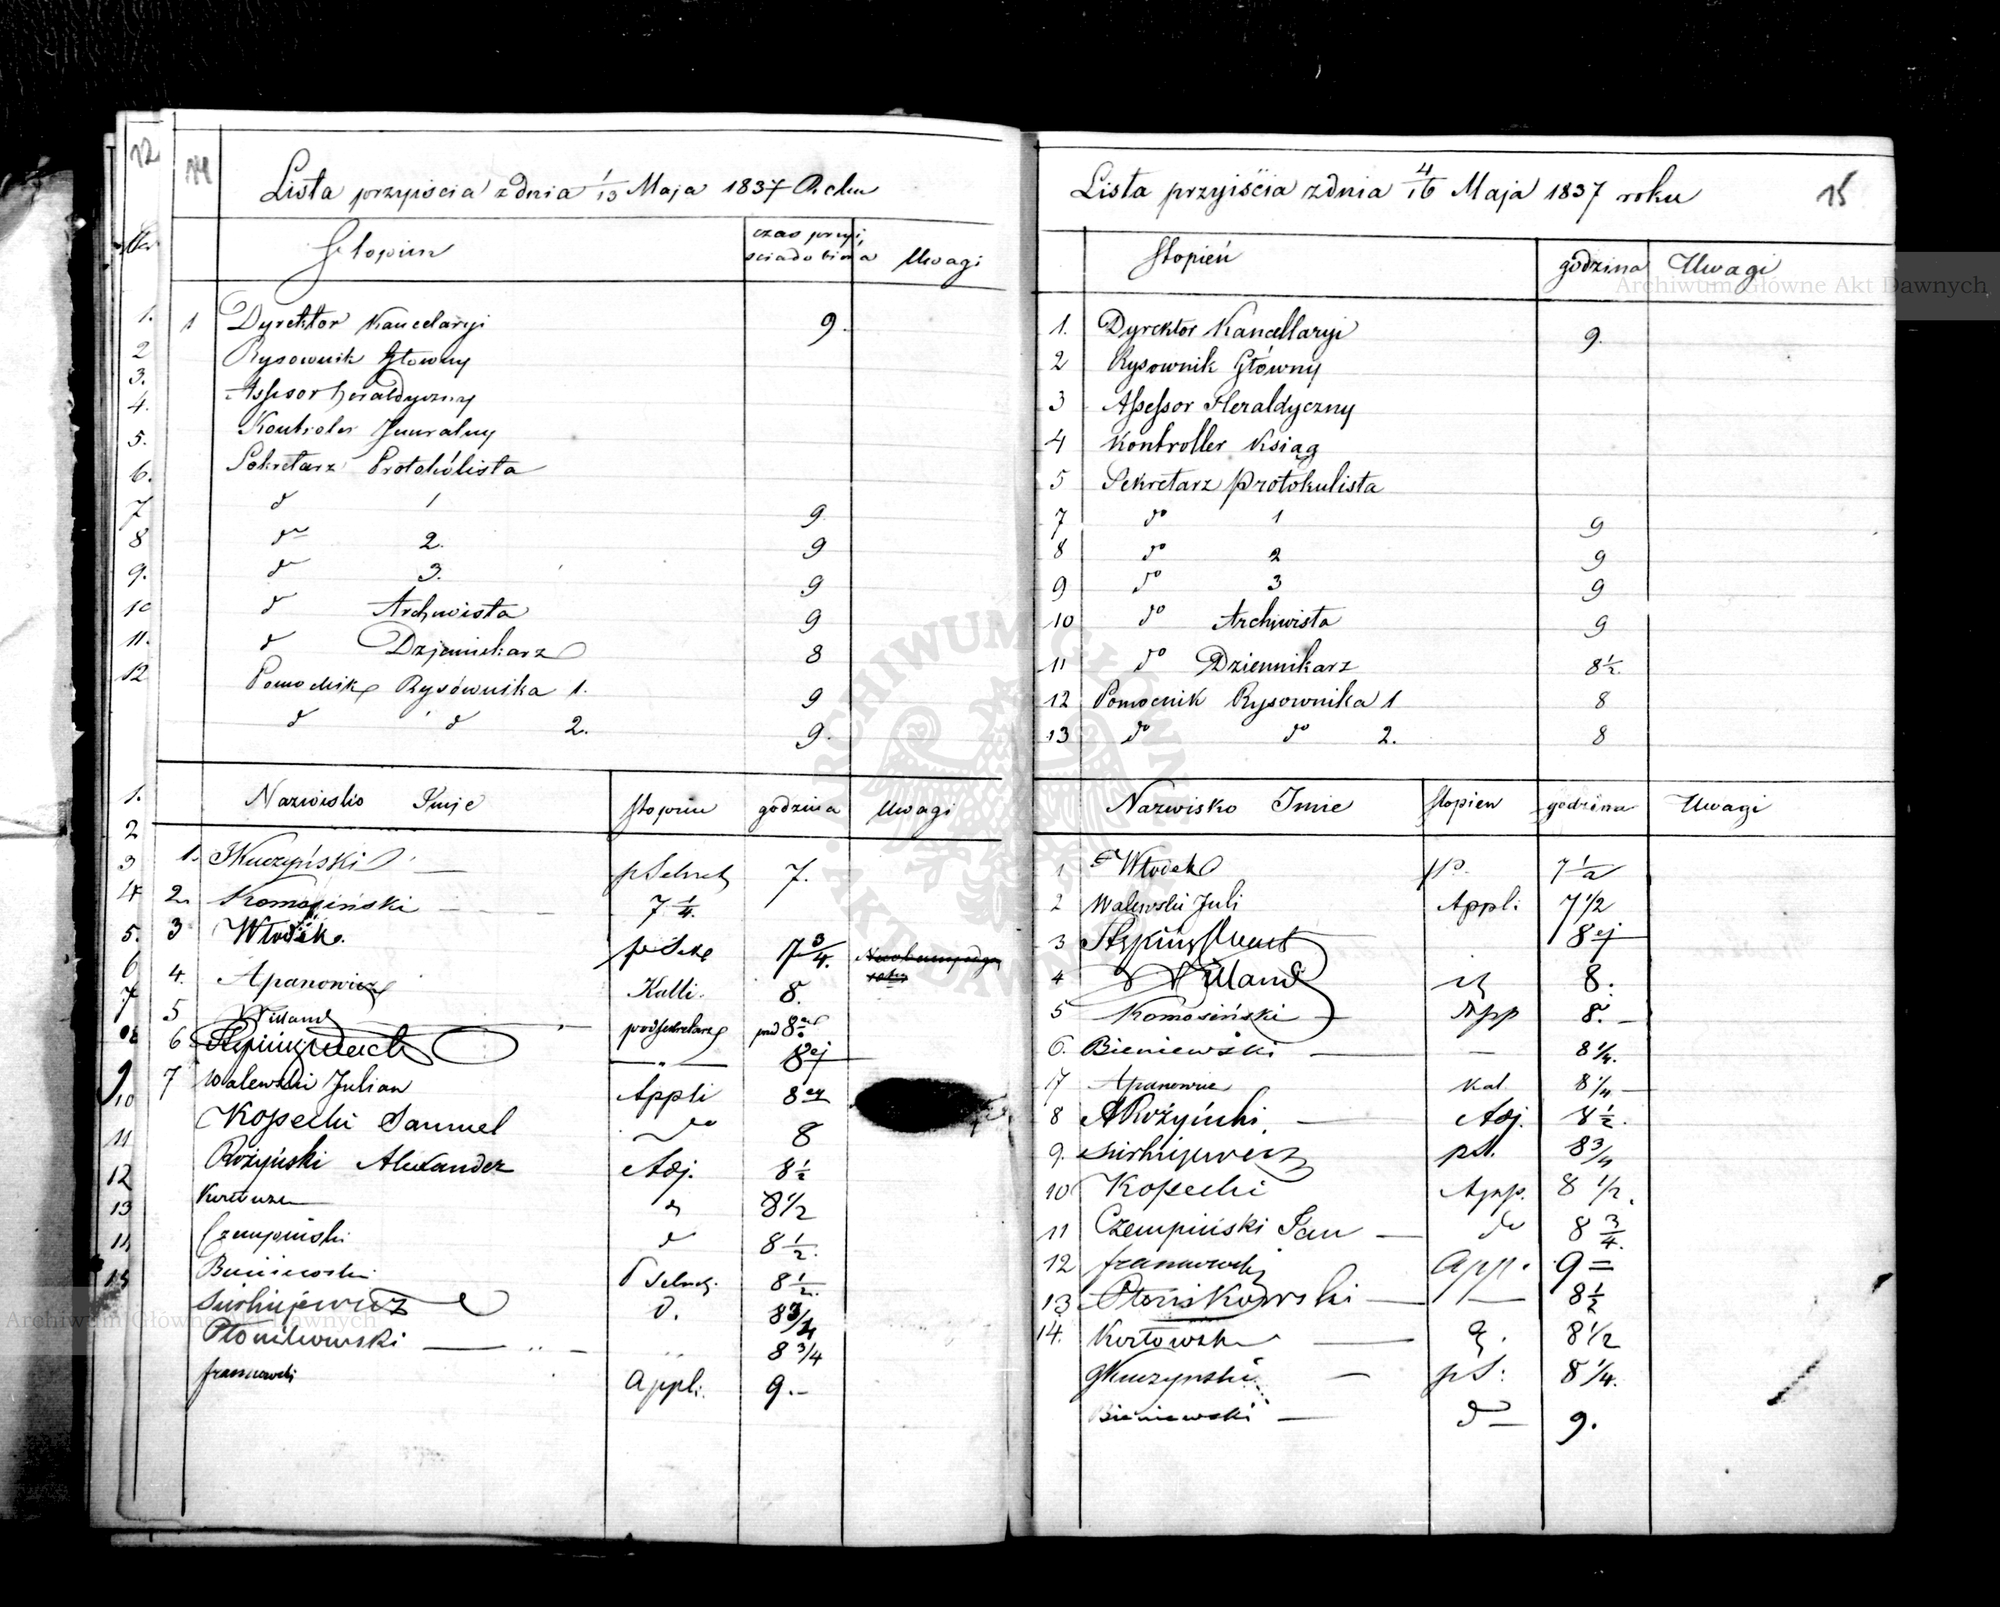 12
14
Lista przyiścia z dnia 1/13 Maja 1837 Roku
Stopień czas przyi, Uwagi
ścia do biura
1 Dyrektor Kancelaryi 9.
Rysownik Główny
Assesor heraldyczny
Kontroler Jeneralny
Sekretarz Protokólista
d 1 9
do 2. 9
do 3. 9
d Archiwista 9
d Dzienikarz 8
Pomocnik Rysównika 1. 9
d d 2. 9.
Nazwisko Imie Stopień godzina Uwagi
1. Kuczyński p Sekret 7.
2. Komosiński 7 1/4.
3 Włodek 7 3/4.
4. Apanowicz Kalli. 8.
5 Willand podsekretarz pnd 8
6 8ej
7 Walewski Julian Appli 8
Kopecki Samuel do 8
Różyński Alexander Adj. 8 1/2
8 1/2
Czempiński d 8 1/2.
Bieniewski P Sekret. 8 1/2.
d. 8 3/4
Płonikowski 8 3/4
Appli. 9.–
Nr
1.
2
3.
4.
5.
6.
7
8
9.
10
11.
12
1.
2
3
4
5.
6
7
8
9
10
11
12
13
14
15
15
Lista przyiścia z dnia 4/16 Maja 1837 roku
Stopień godzina Uwagi
1. Dyrektor Kancellaryi 9.
2 Rysownik Główny
3 Assessor Heraldyczny
4 Kontroller Ksiąg
5 Sekretarz Protokulista
7 do 1 9
8 do 2 9
9 do 3 9
10 do Archiwista 9
11 do Dziennikarz 8 1/2.
12 Pomocnik Rysownika 1 8
13 do do 2. 8
Nazwisko Imie Stopien godzina Uwagi
1 Włodek 7 1/2
2 Walewski Juli Appli. 7 1/2
3 8ej
4 Willand 8.
5 Komosiński App 8.–
6. Bieniewski — — 8 1/4.
7 Apanowic Kal 8 1/4
8 A Różyński. Adj. 8 1/2.
9. 8 3/4
10 Kopecki App. 8 1/2.
11 Czempiński Jan — do 8 3/4.
12 app. 9 =
13 Płonikowski — 8 1/2
14. 8 1/2
Kuczynski — pS. 8 1/4.
Bieniewski — do 9.
Archiwum Główne Akt Dawnych
Archiwum Główne Akt Dawnych
ARCHIWUM GŁÓWNE AKT DAWNYCH